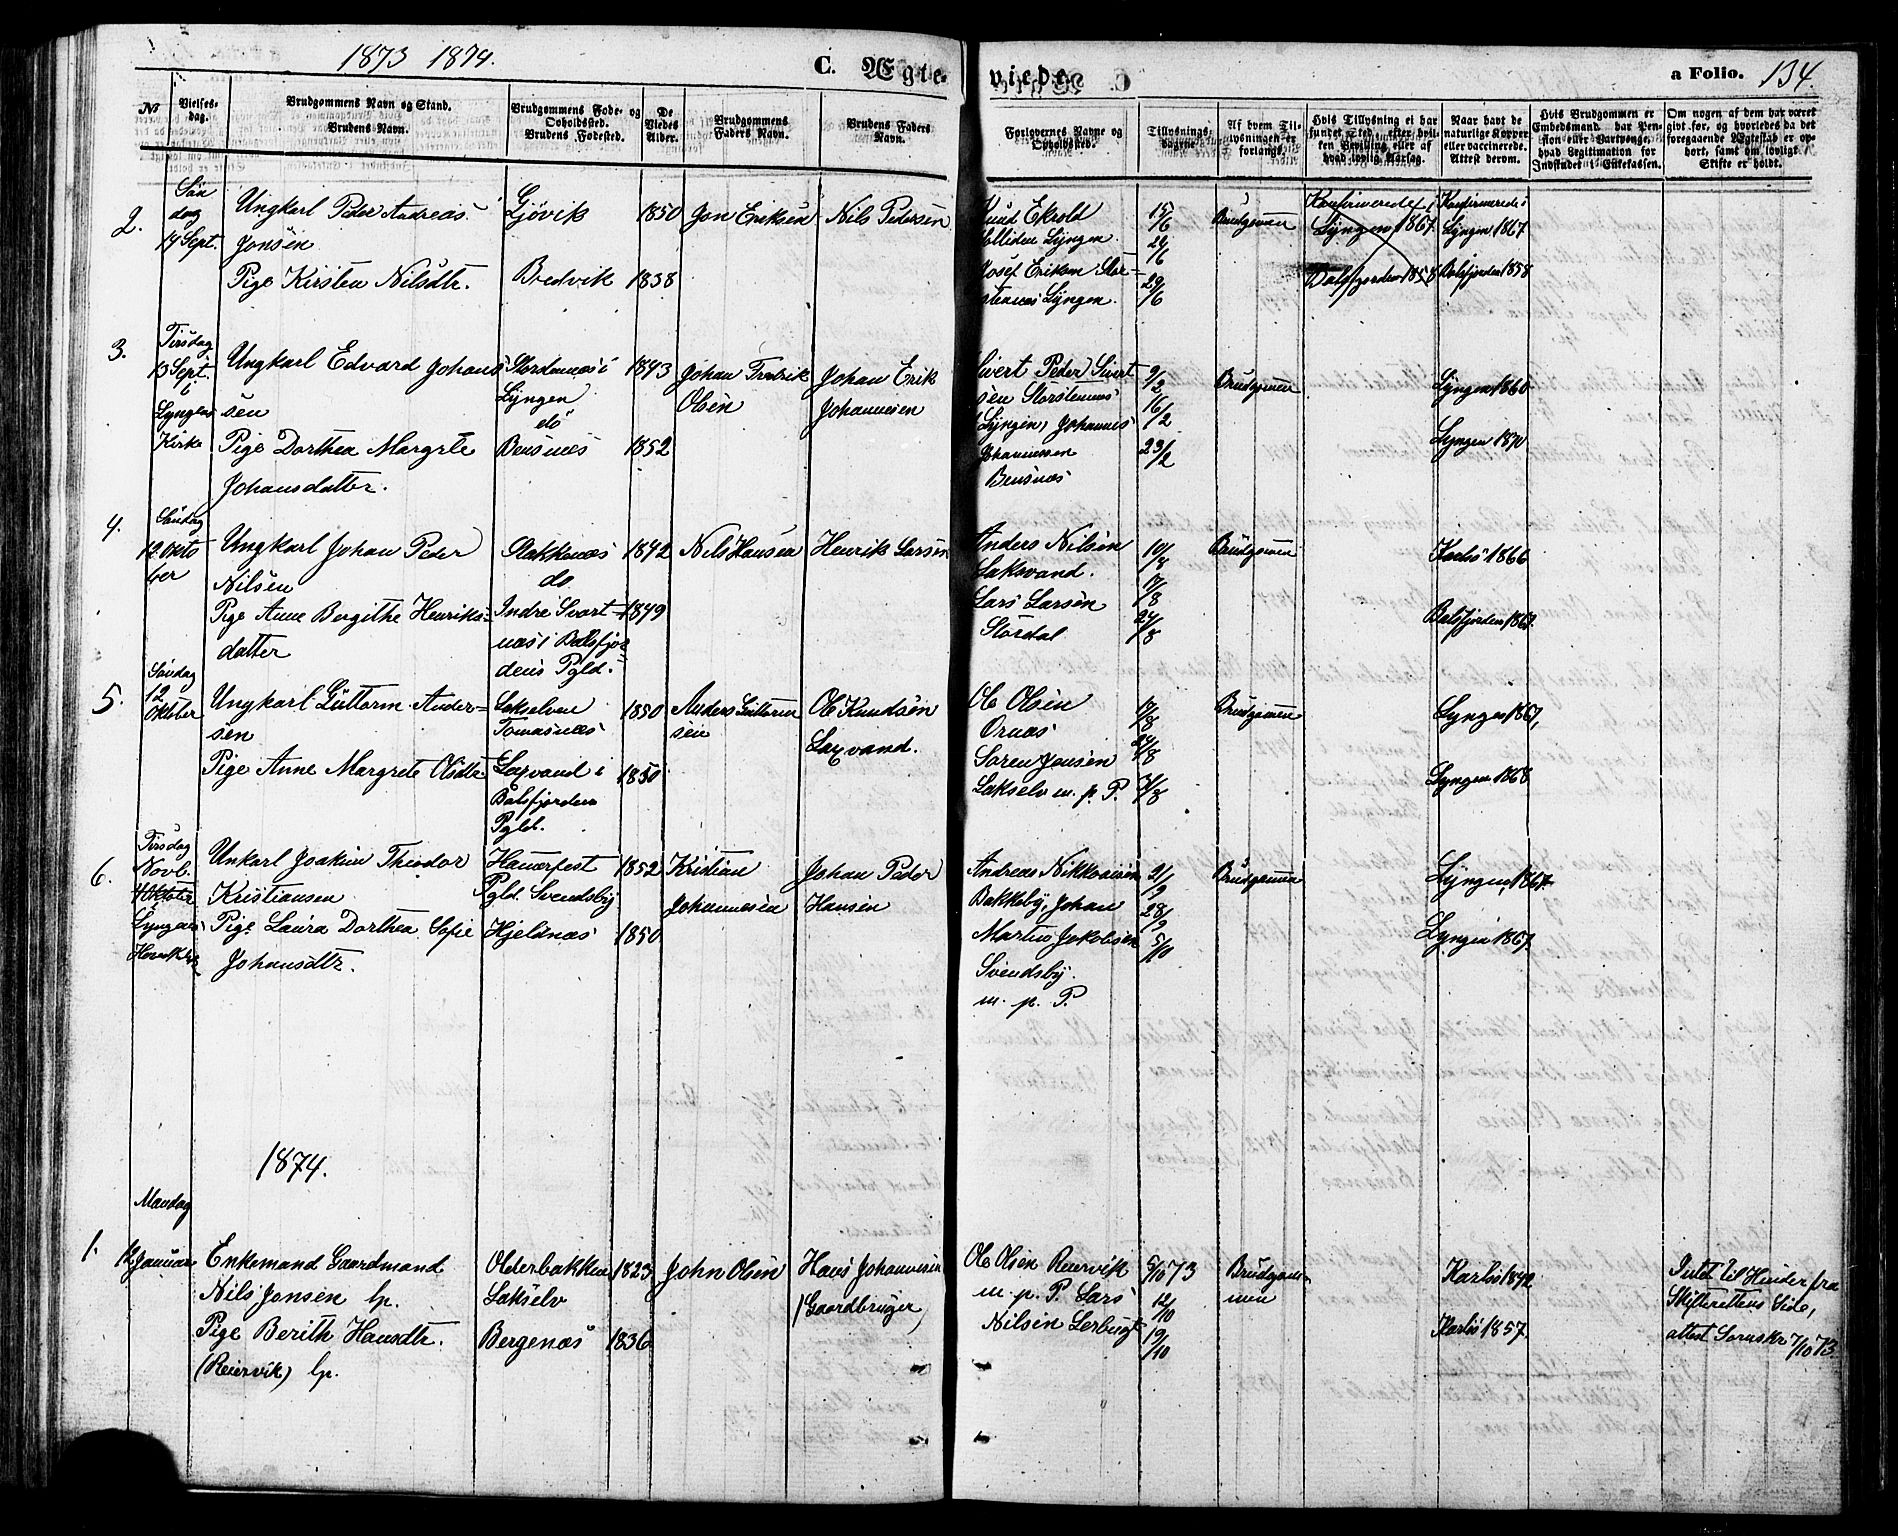 1873 1874.
C. Ægte-
viede
a Folio. 134.
No
Vielses-
dag.
Brudgommens Navn og Stand.
Brudens Navn.
Brudgommens Fode- og
Opholdssted.
Brudens Fodested.
De
Viedes
Alder.
Brudgommens
Faders Navn.
Brudens Faders
Navn.
Forlovernes Navne og
Opholdssted.
Tillysnings-
dagene
Af hvem Til-
lysningen er
forlangt.
Hvis Tillysning ei har
fundet Sted, efter hvil-
ken Bevilling eller af
hvad lovlig Aarsag.
Naar havt de
naturlige Kopper
eller vaccinerede.
Attest derom.
Hvis Brudgommen er
Embedsmand, har Pen-
sion eller Vartpenge,
hvad Legitimation for
Indskudet i Enkekassen.
Om nogen af dem har været
givt før, og hvorledes da det
foregaaende Ægteskab er op-
hørt, samt om lovligt
Skifte er holdt.
2.
Søn
dag
14 Sept.
Ungkarl Peder Andreas
Jonsen
Pige Kirsten Nilsdtr.
Gjövik
Bredvik
1850
1838
Jon Eriksen
Nils Pedersen
Knud Ekrold
Lyngen
Josef Eriksen Stor-
stennes Lyngen.
15/6
22/6
29/6
Brudgommen
Konfirmerede i
Lyngen 1867
Balsfjorden 1858
Konfirmerede i
Lyngen 1867
Balsfjorden 1858
3.
Tirsdag
13 Sept.
i
Lyngens
Kirke
Ungkarl Edvard Johans
sen
Pige Dorthea Margrete
Johansdatter.
Stordennæs i
Lyngen
do
Bensnæs
1843
1852
Johan Fredrik
Olsen
Johan Erik
Johannesen
Sivert Peder Sivert
sen Storstennæs
Lyngen, Johannes
Johannessen
Bensnæs
9/2
16/2
23/2
Brudgommen
Lyngen 1860
Lyngen 1870
4.
Søndag
12. Okto
ber
Ungkarl Johan Peder
Nilsen
Pige Anne Bergithe Henriks-
datter
Stakkenæs
do
Indre Svart-
næs i Balsfjor
dens Pgld.
1842
1849
Nils Hansen
Henrik Larsen
Anders Nilsen
Laksvand.
Lars Larsen
Stordal
10/8
17/8
24/8
Brudgommen
Karlsö 1866
Balsfjorden 1867.
5.
Søndag
12
Oktober
Ungkarl Guttorm Ander-
sen
Pige Anne Margrete Olsdtr
Lakselven
Tomasnæs
Laxvand i
Balsfjorden
Pgld.
1850
1850
Anders Guttorm
sen
Ole Knudsen
Laxvand.
Ole Olsen
Ornæs
Søren Jensen
Lakselv m. p. P.
17/8
24/8
31/8
Brudgommen
Lyngen 1867,
Lyngen 1868
6.
Tirsdag
Novb.
4 Oktober
Lyngens
Hovedkirke
Unkarl Joakim Theodor
Kristiansen
Pige Laura Dorthea Sofie
Johansdtr.
Hamerfest
Pgld. Svendsby
Hjeldnæs
1852
1850
Kristian
Johannesen
Johan Peder
Hansen
Andreas Nikolaisen
Bakkeby, Johan
Martin Jakobsen
Svendsby.
m. p. P.
21/9
28/9
5/10
Brudgommen
Lyngen 1867
Lyngen 1867.
1874.
1.
Mandag
12 Januar
Enkemand Gaardmand
Nils Jonsen lp.
Pige Berith Hansdtr.
(Reiervik) lp.
Olderbakken
Lakselv
Bergenæs
1823
1836
John Olsen
Hans Johannesen
(Gaardbruger)
Ole Olsen Reiervik
m. p. P. Lars
Nilsen Lerbugt
5/10 73
12/10
19/10
Brudgom-
men
Karlsö 1842
Karlsö 1857.
Intet til Hinder fra
Skifterettens Side,
attest Sorenskr 7/10 73.